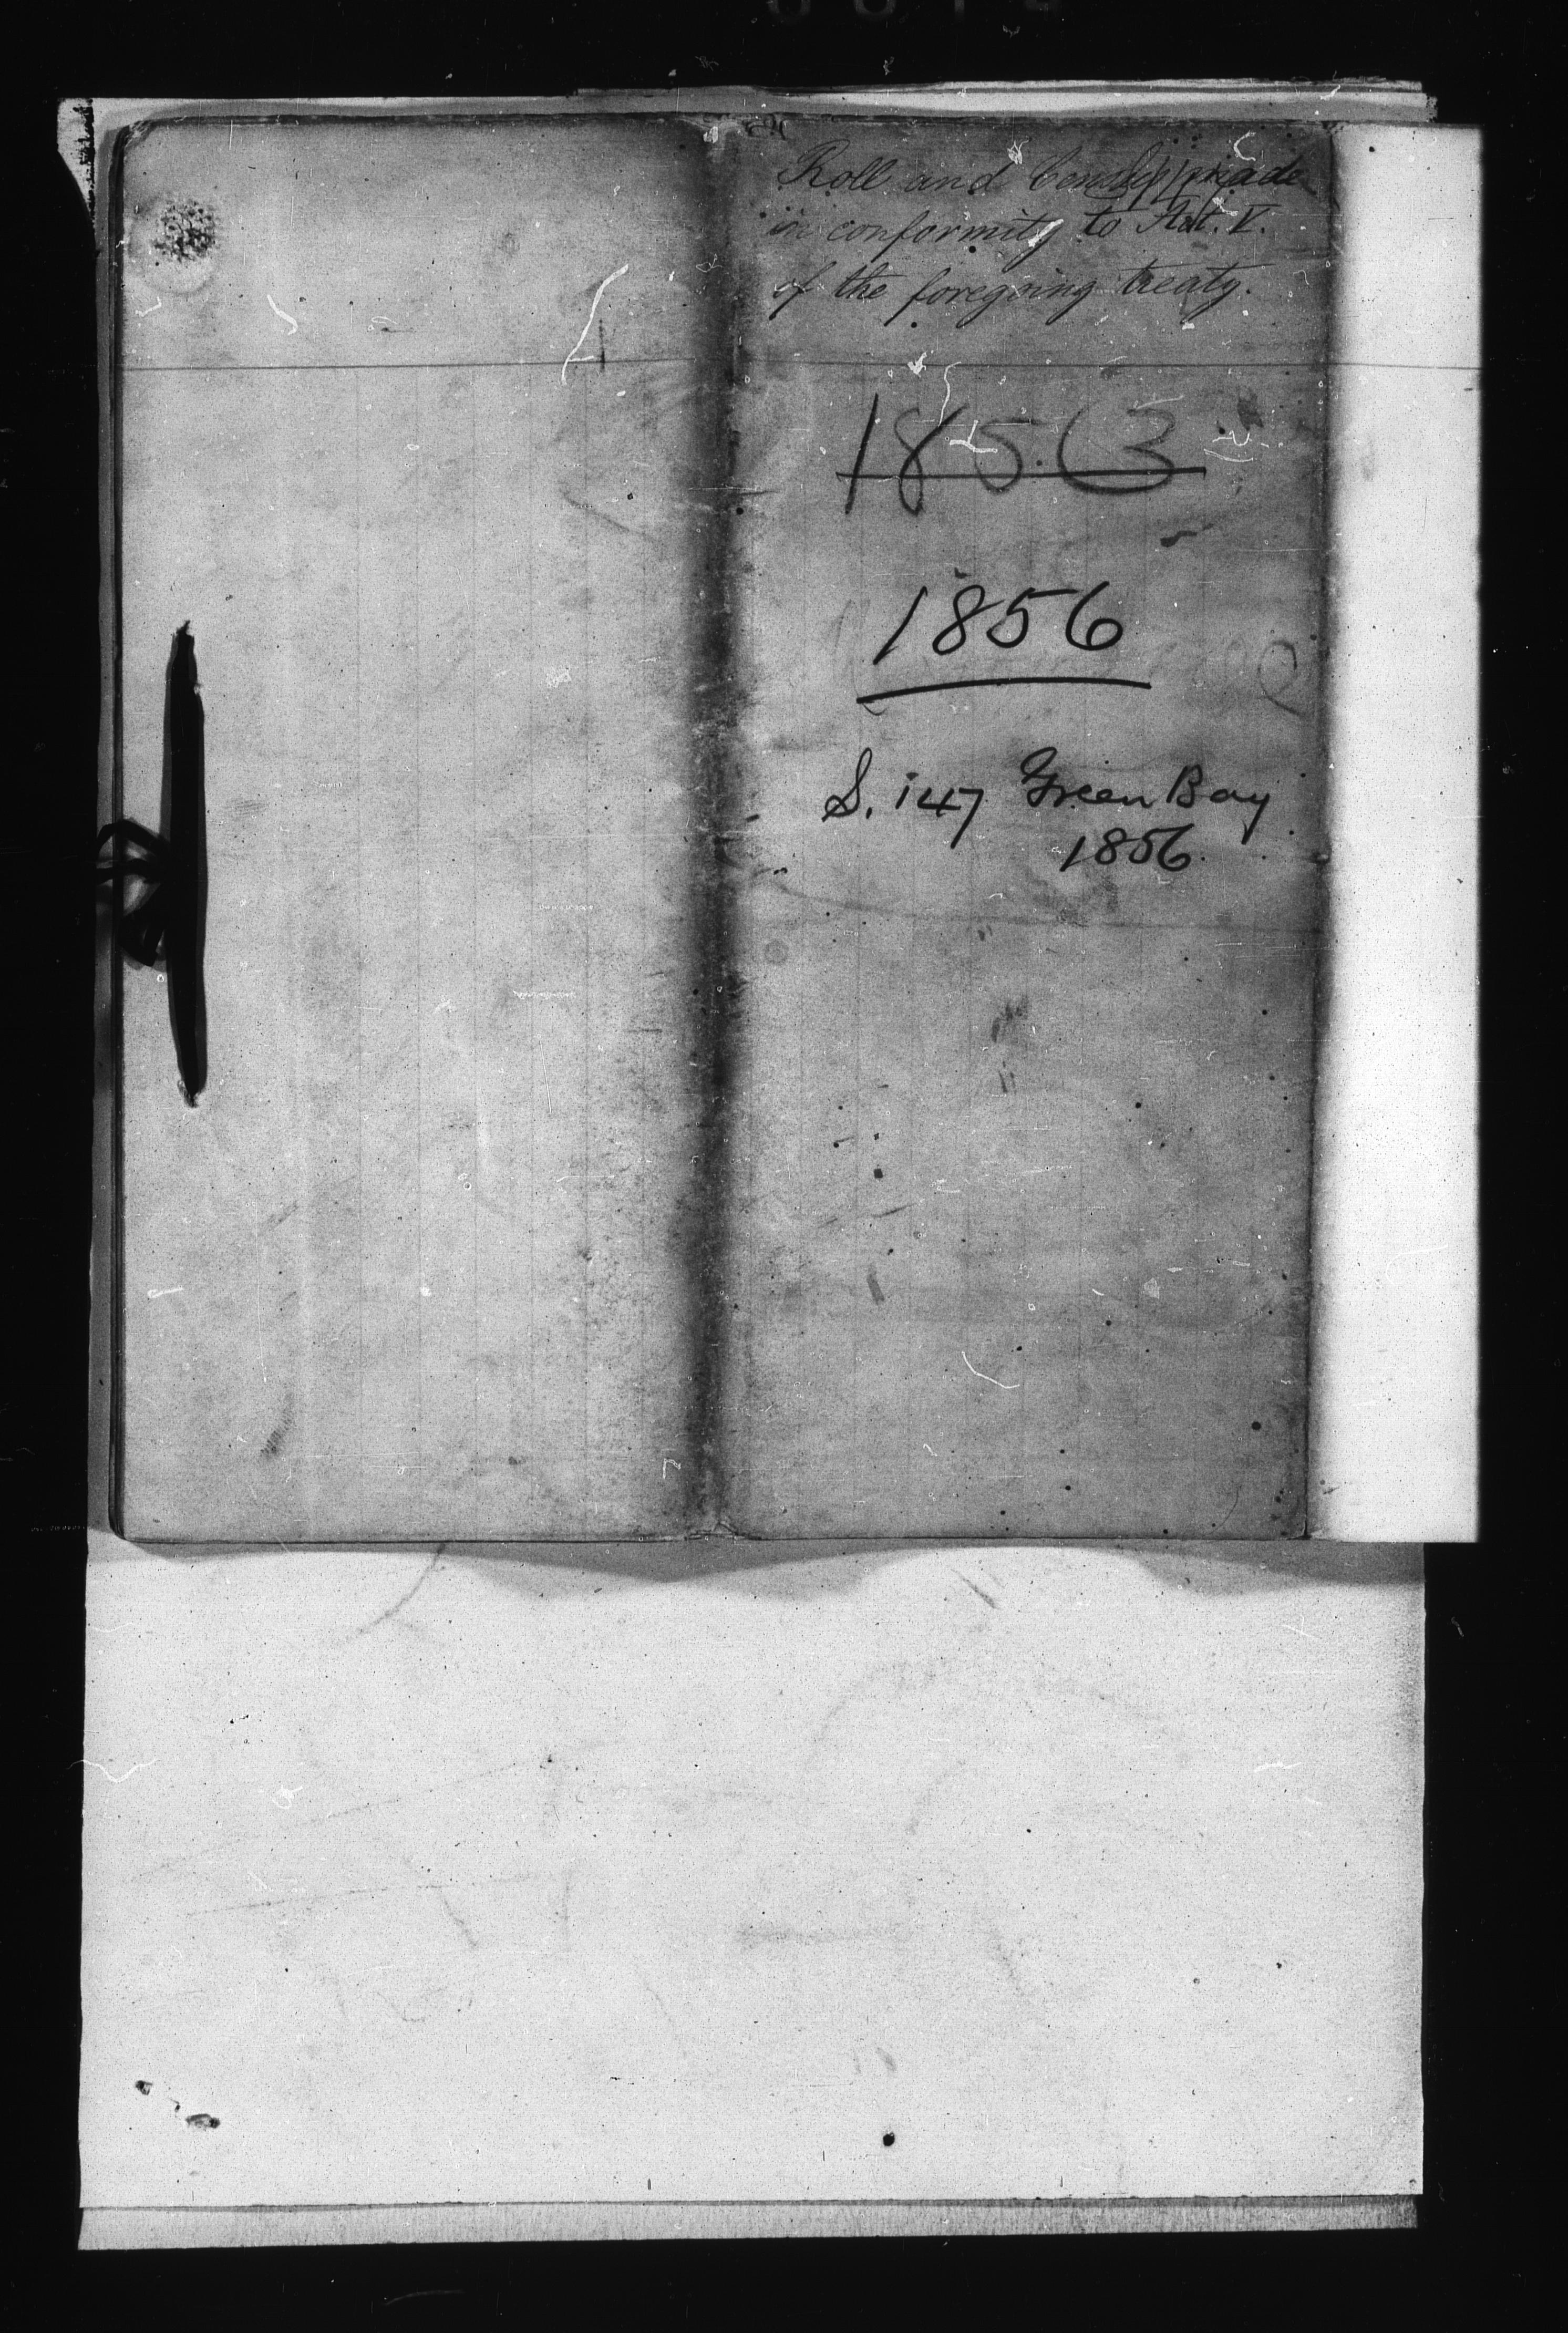 Roll and Census made
in conformity to Art. V.
of the foregoing treaty.
1856
S. 147 Green Bay
1856